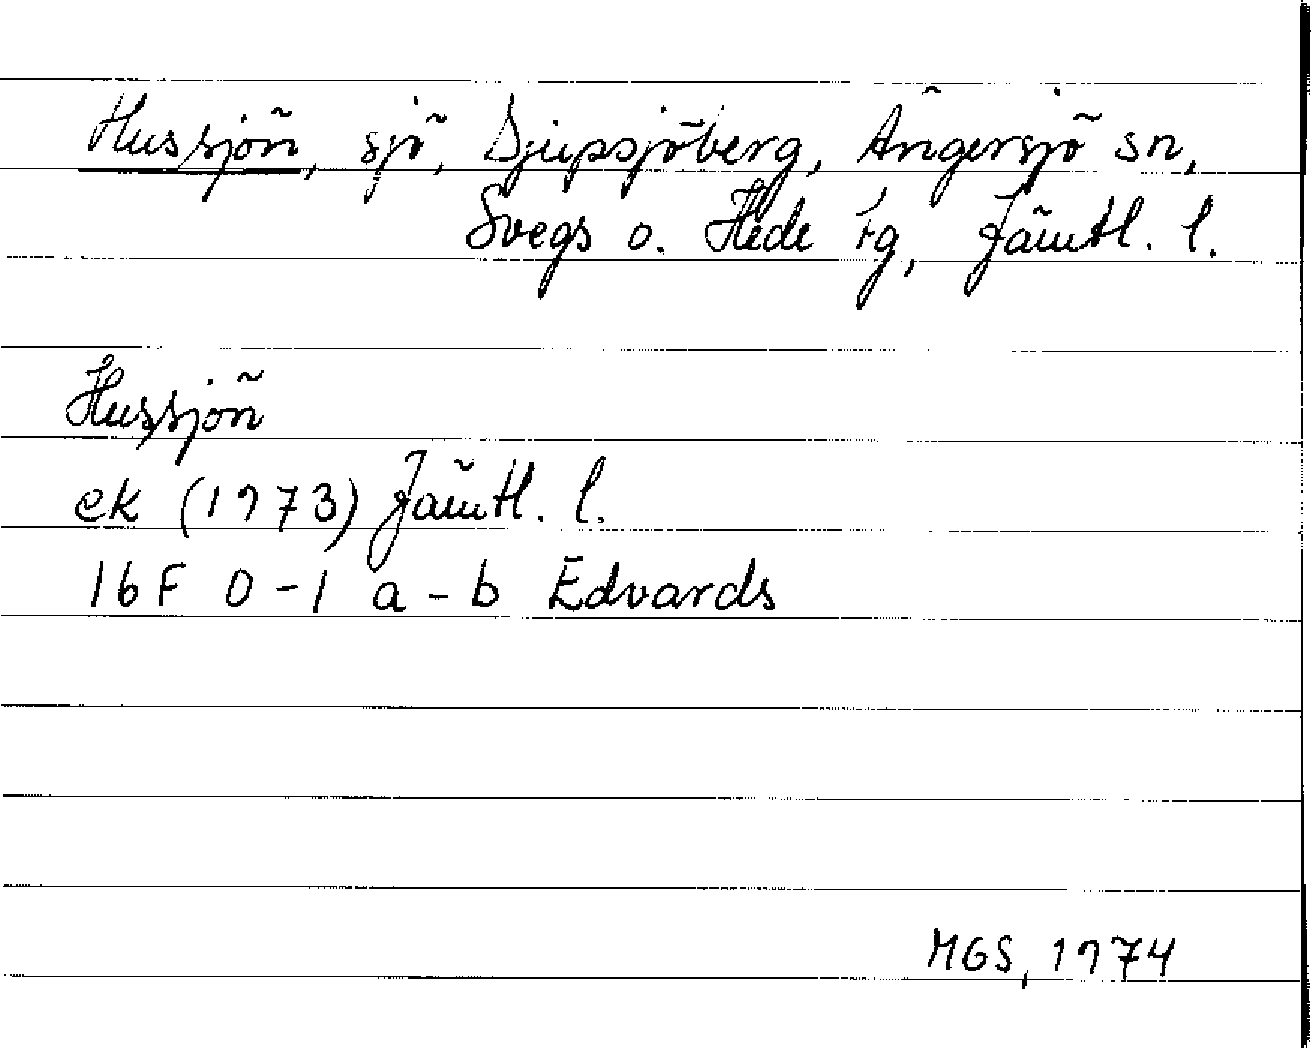 Hussjön, sjö, Djupsjöberg, Ängersjö sn,
Svegs o. Hede tg, Jämtl. l.
Hussjön
ek (1973) Jämtl. l.
16F 0-1 a-b Edvards
MGS, 1974